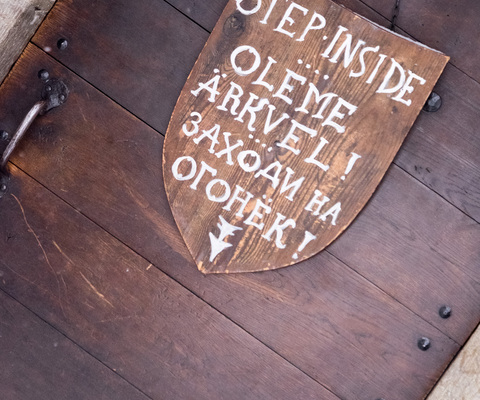 STEP·INSIDE
OLEME
ÄRKVEL!
ЗАХОДИ НА
ОГОНЁК!